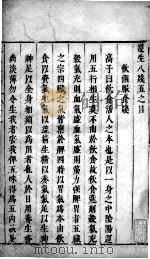 遵生八牋五之目
飲饌服食牋
高子曰飲食活人之本也是以一身之中陰陽運
用五行相生莫不由於飲食故飲食進則穀氣充
穀氣充則血氣盛血氣盛則筋力強脾胃者五臟
之宗四臟之氣皆稟於脾四時以胃氣為本由飲
食以資氣生氣以益精生精以養氣氣足以生
神神足以全身相須以為用者也人於日用養生
務尚淡薄勿令生我者害我俾五味得為五內賊